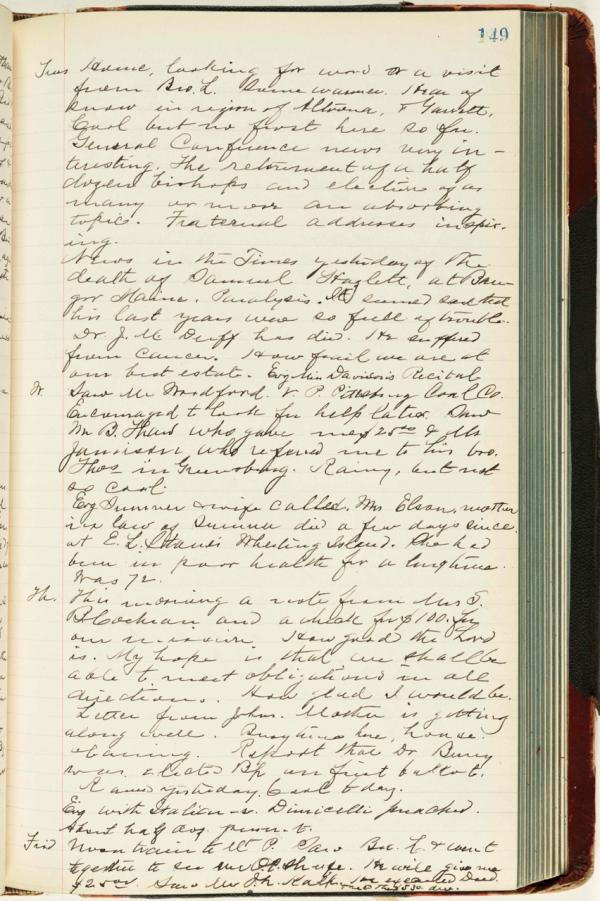 149
Tues Home, looking for word or a visit
from Bro. L. Some warmer. Hear of
snow in region of Altoona, & Garrett,
Cool but no frost here so far.
General Conference news very in-
teresting. The retirement of a half
dozen bishops and election of as
many or more an absorbing
topic. Fraternal addresses inspir-
ing.
News in the Times yesterday of the
death of Samuel Hazlett, at Ban-
gor Maine. Paralysis. It seemed sad that
his last years were so full of trouble.
Dr. J. M. Duff has died. He suffered
from cancer. How frail we are at
our best estate. Evg Min Davison's Recital
W. Saw Mr Woodford. V. P. Pittsburg Coal Co.
Encouraged to look for help later. Saw
Wm B. Thaw who gave me $25.00 & Mr
Jamison who referred me to his bro.
Thos in Greensburg. Rainy, but not
so cool.
Evg Sumner & wife called. Mrs Elson, mother
in law of Sumner died a few days since
at E. L. Wheeling Island. She had
been in poor health for a long time.
Was 72.
Th. This morning a note from Mrs S.
B. Cochran and a check for $100. for
our mission. How good the Lord
is. My hope is that we shall be
able to meet obligations in all
directions. How glad I would be.
Letter from John. Mother is getting
along well. Busy time here, house
cleaning. Report that Dr. Berry
was elected Bp. on first ballot.
Rained yesterday. Cool today.
Evg with Italian. Dimicelli preached.
About half doz. present.
Frid Noon train to W. P. Saw Bro. L. & went
together to see Mr. He will give me
$25.00. Saw Mr J. R. He